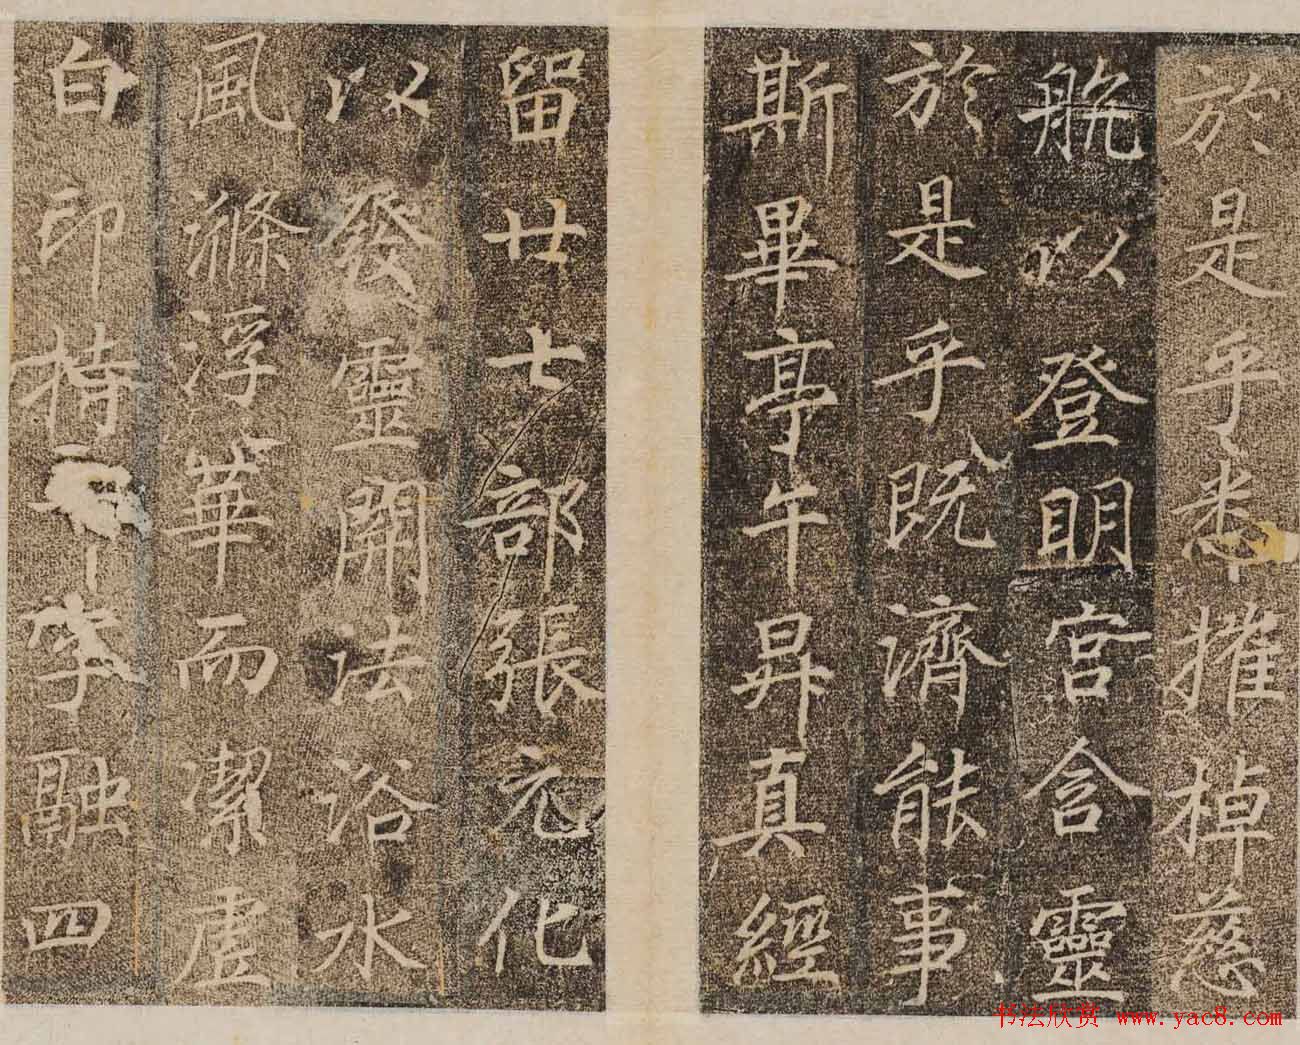 於是乎悉摧棹慈
航以登明宮含靈
於是乎既濟能事
斯畢亭午昇真經
留廿七部張元化
以發靈開法浴水
風滌浮華而潔虛
白印持十字融四
书法欣赏 www.yac8.com